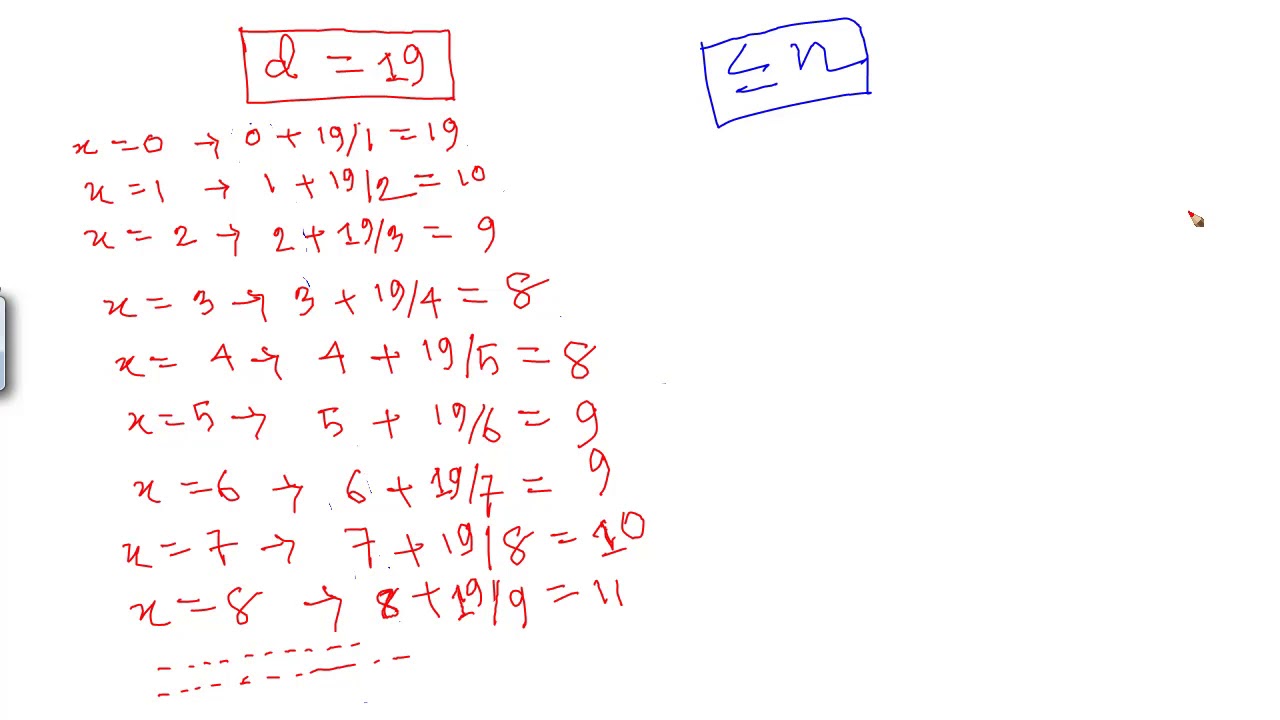 d = 19
≤ n
x = 0 → 0 + 19/1 = 19
x = 1 → 1 + 19/2 = 10
x = 2 → 2 + 19/3 = 9
x = 3 → 3 + 19/4 = 8
x = 4 → 4 + 19/5 = 8
x = 5 → 5 + 19/6 = 9
x = 6 → 6 + 19/7 = 9
x = 7 → 7 + 19/8 = 10
x = 8 → 8 + 19/9 = 11